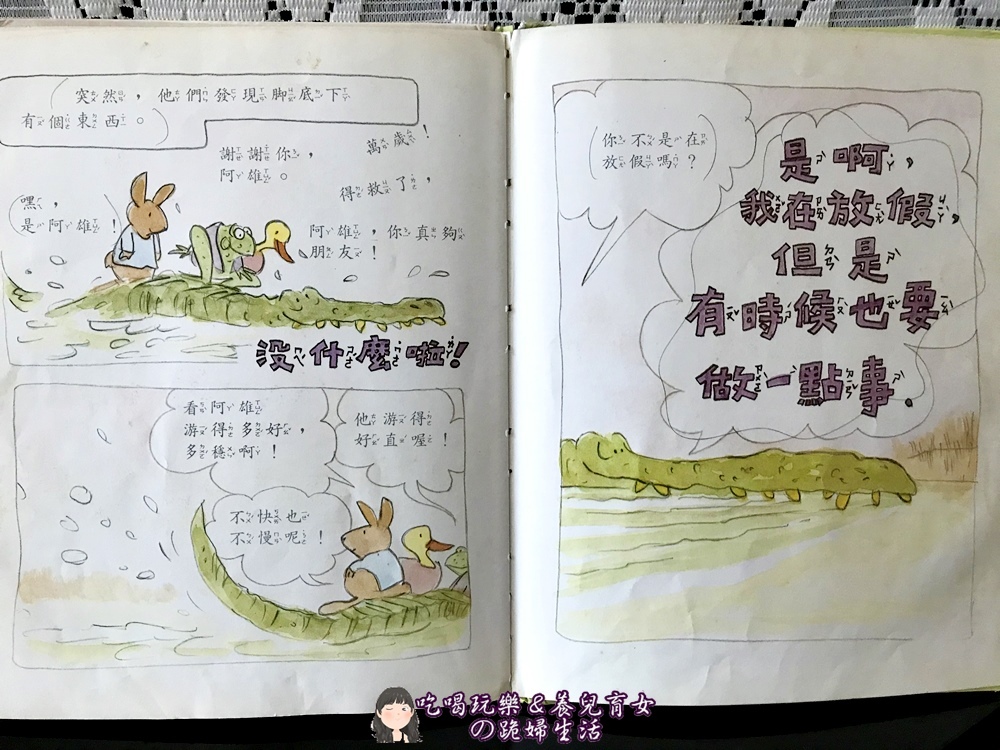 突然，他們發現腳底下
有個東西。
嘿，
是阿雄！
謝謝你，
阿雄。
萬歲！
得救了，
阿雄，你真夠
朋友！
沒什麼啦！
看阿雄
游得多好，
多穩啊！
他游得
好直喔！
不快也
不慢呢！
你不是在
放假嗎？
是啊，
我在放假，
但是
有時候也要
做一點事．
吃喝玩樂&養兒育女
の跪婦生活